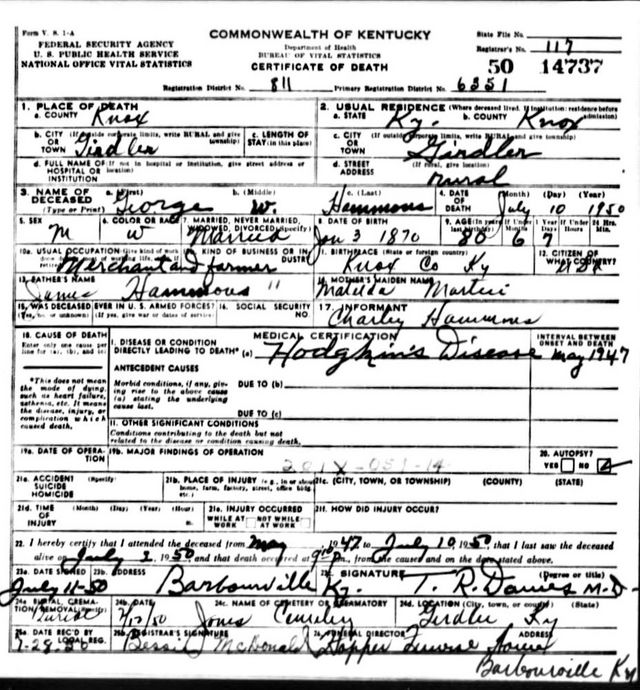 Form V. S. 1-A
COMMONWEALTH OF KENTUCKY
State File No.
FEDERAL SECURITY AGENCY
Department of Health
Registrar's No. 117
U. S. PUBLIC HEALTH SERVICE
BUREAU OF VITAL STATISTICS
NATIONAL OFFICE VITAL STATISTICS
CERTIFICATE OF DEATH
50 14737
Registration District No. 811 Primary Registration District No. 6351
1. PLACE OF DEATH
a. COUNTY Knox
2. USUAL RESIDENCE (Where deceased lived. If institution: residence before admission)
a. STATE Ky. b. COUNTY Knox
b. CITY OR TOWN (If outside corporate limits, write RURAL and give township) Girdler
c. LENGTH OF STAY (in this place)
c. CITY OR TOWN (If outside corporate limits, write RURAL and give township) Girdler
d. FULL NAME OF HOSPITAL OR INSTITUTION (If not in hospital or institution, give street address or location)
d. STREET ADDRESS (If rural, give location) rural
3. NAME OF DECEASED (Type or Print) a. (First) George b. (Middle) W. c. (Last) Hammons
4. DATE OF DEATH (Month) (Day) (Year) July 10 1950
5. SEX M
6. COLOR OR RACE W
7. MARRIED, NEVER MARRIED, WIDOWED, DIVORCED (Specify) Married
8. DATE OF BIRTH Jan 3 1870
9. AGE (In years last birthday) 80 If Under 1 Year 6 7 If Under 24 Hrs.
10a. USUAL OCCUPATION (Give kind of work done during most of working life, even if retired) Merchant and farmer
10b. KIND OF BUSINESS OR INDUSTRY "
11. BIRTHPLACE (State or foreign country) Knox Co Ky
12. CITIZEN OF WHAT COUNTRY? USA
13. FATHER'S NAME James Hammons
14. MOTHER'S MAIDEN NAME Matilda Martin
15. WAS DECEASED EVER IN U. S. ARMED FORCES? (Yes, no, or unknown) (If yes, give war or dates of service)
16. SOCIAL SECURITY NO.
17. INFORMANT Charley Hammons
18. CAUSE OF DEATH
Enter only one cause per line for (a), (b), and (c)
MEDICAL CERTIFICATION
INTERVAL BETWEEN ONSET AND DEATH
I. DISEASE OR CONDITION DIRECTLY LEADING TO DEATH* (a) Hodgkin's Disease May 1947
*This does not mean the mode of dying, such as heart failure, asthenia, etc. It means the disease, injury, or complication which caused death.
ANTECEDENT CAUSES
Morbid conditions, if any, giving rise to the above cause (a) stating the underlying cause last.
DUE TO (b)
DUE TO (c)
II. OTHER SIGNIFICANT CONDITIONS
Conditions contributing to the death but not related to the disease or condition causing death.
19a. DATE OF OPERATION
19b. MAJOR FINDINGS OF OPERATION
201X-051-14
20. AUTOPSY? YES NO
21a. ACCIDENT SUICIDE HOMICIDE (Specify)
21b. PLACE OF INJURY (e.g., in or about home, farm, factory, street, office bldg., etc.)
21c. (CITY, TOWN, OR TOWNSHIP) (COUNTY) (STATE)
21d. TIME OF INJURY (Month) (Day) (Year) (Hour)
21e. INJURY OCCURRED WHILE AT WORK NOT WHILE AT WORK
21f. HOW DID INJURY OCCUR?
22. I hereby certify that I attended the deceased from May, 1947 to July 10, 1950, that I last saw the deceased
alive on July 2, 1950, and that death occurred at m., from the causes and on the date stated above.
23a. DATE SIGNED July 11-50
23b. ADDRESS Barbourville Ky.
23c. SIGNATURE (Degree or title) T. R. Davies M.D.
24a. BURIAL, CREMATION, REMOVAL (Specify) Burial
24b. DATE 7/12/50
24c. NAME OF CEMETERY OR CREMATORY Jones Cemetery
24d. LOCATION (City, town, or county) (State) Girdler Ky
25a. DATE REC'D BY LOCAL REG. 7-28-50
25b. REGISTRAR'S SIGNATURE Bessie McDonald
26. FUNERAL DIRECTOR ADDRESS Hopper Funeral Home
Barbourville Ky